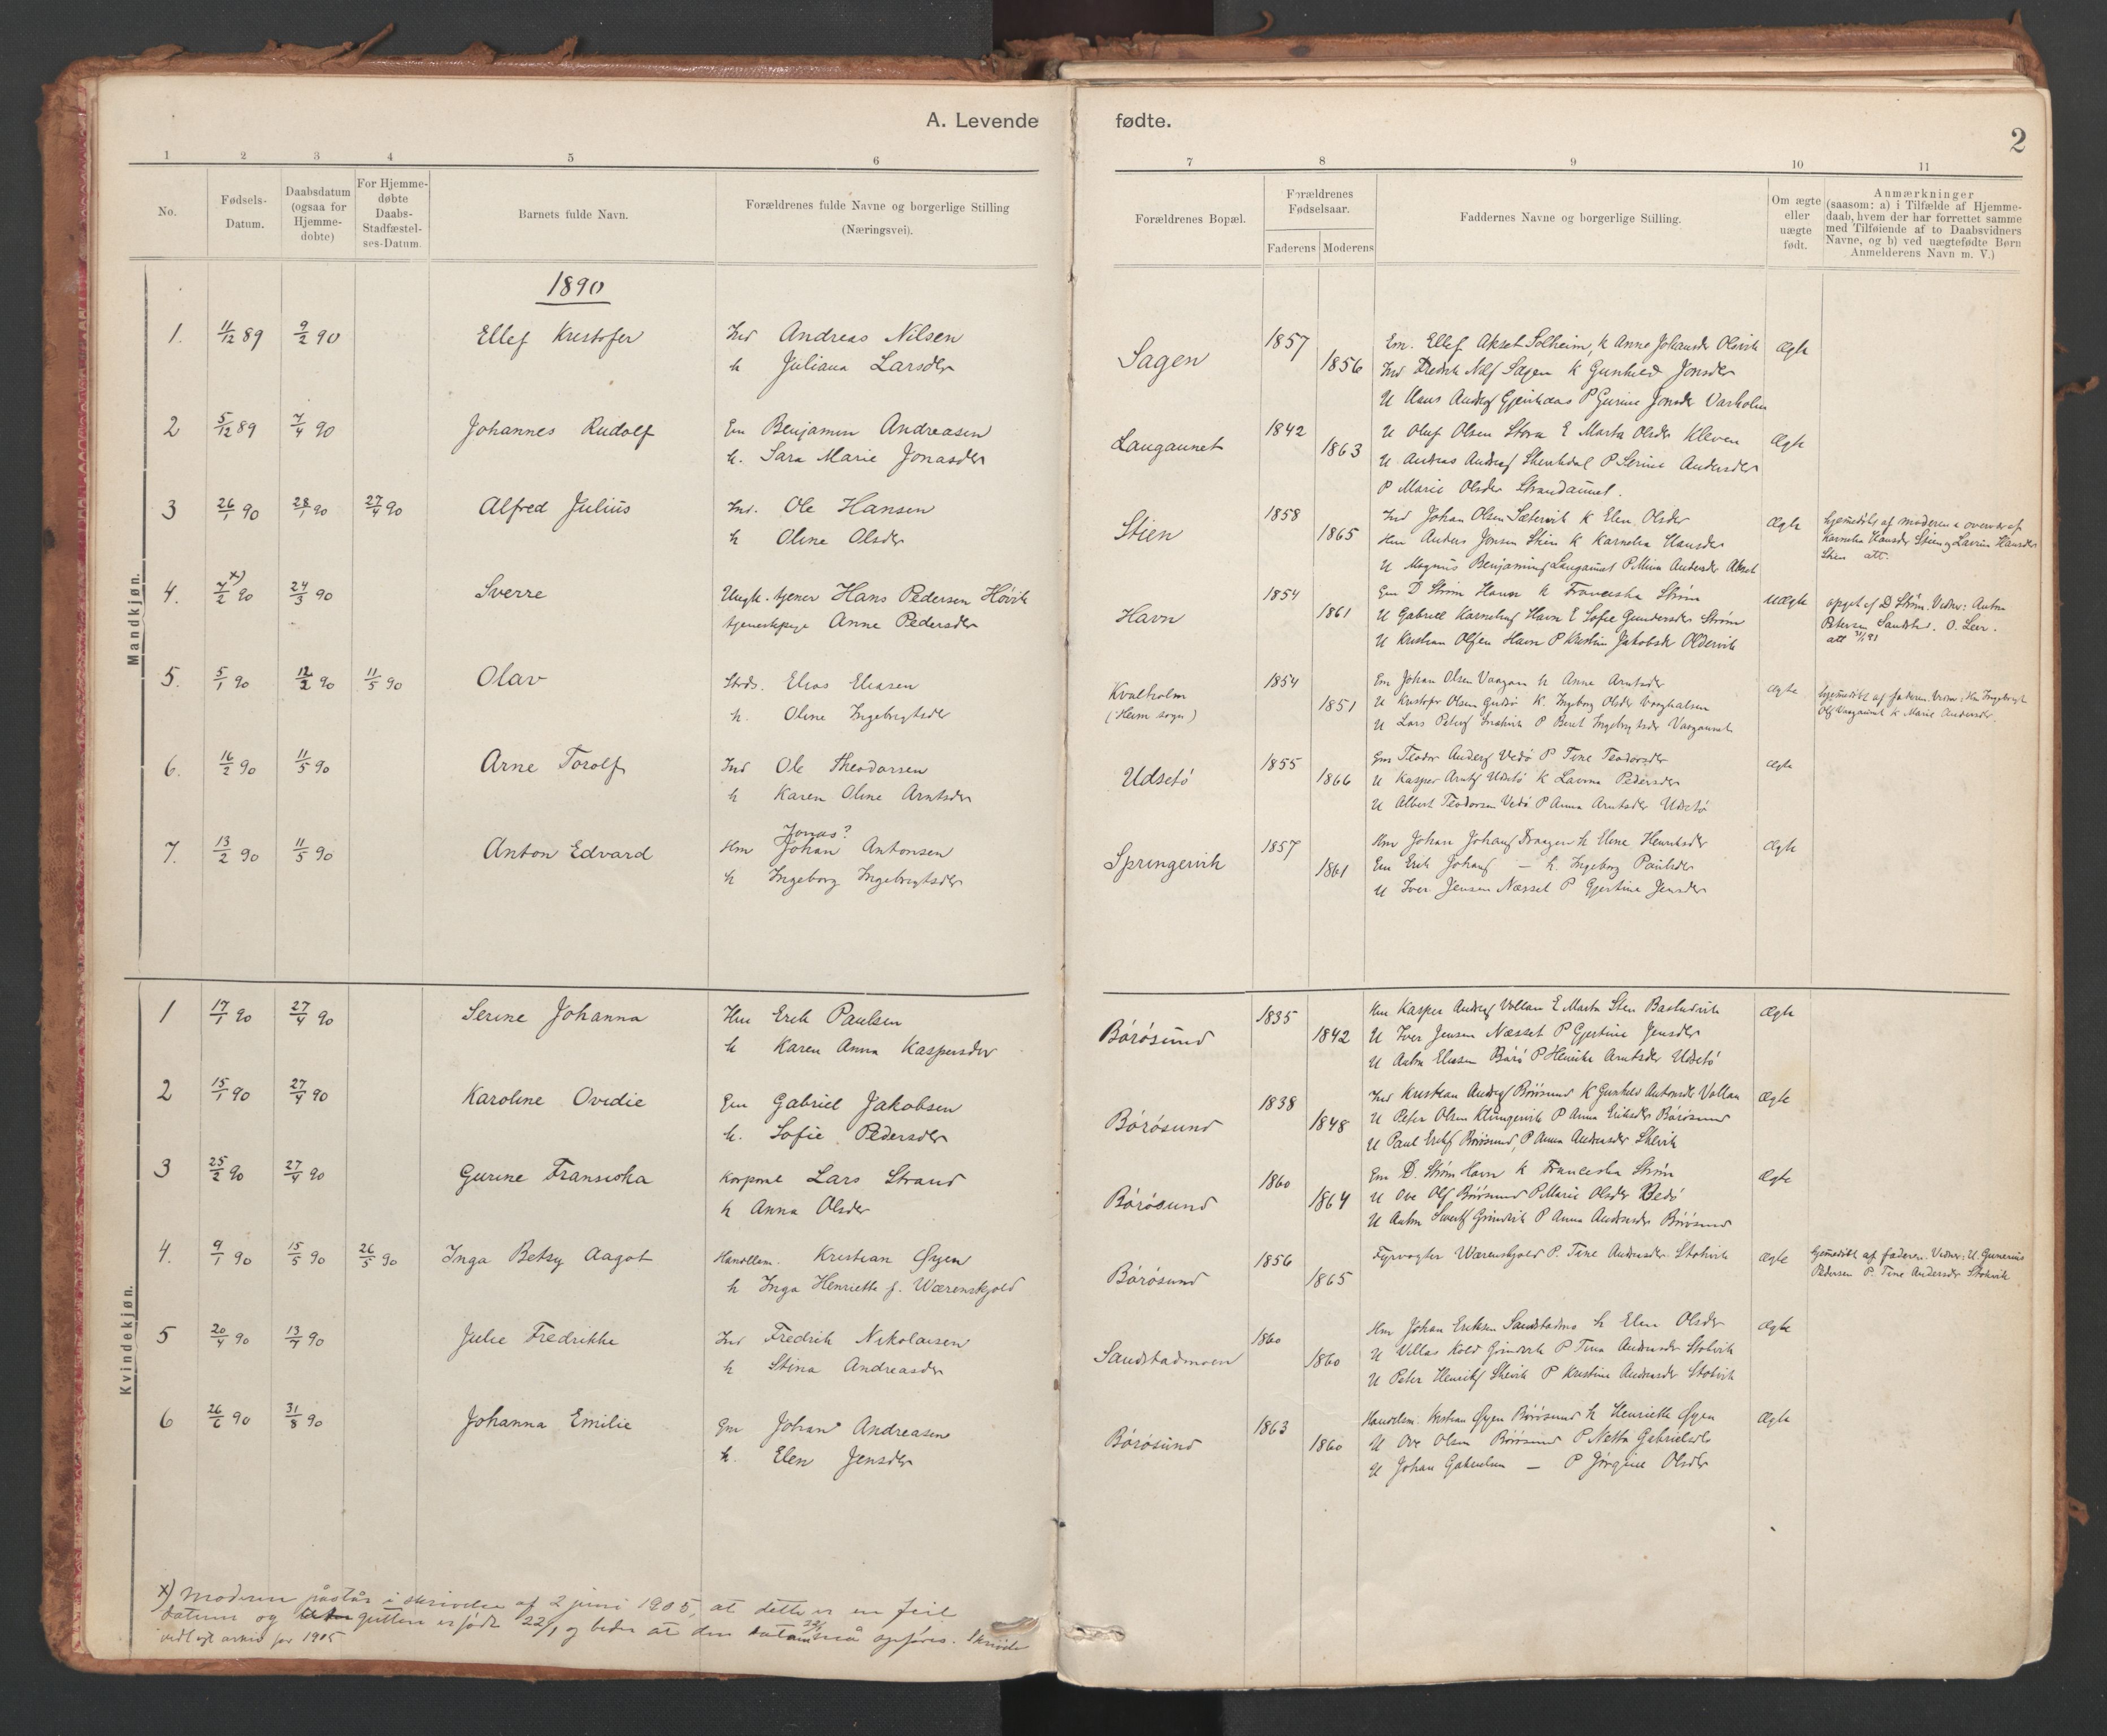 A. Levende fødte.
2
1 2 3 4 5 6 7 8 9 10 11
No.
Fødsels-Datum.
Daabsdatum (ogsaa for Hjemme-døbte)
For Hjemme-døbte Daabs-Stadfæstel-ses-Datum.
Barnets fulde Navn.
Forældrenes fulde Navne og borgerlige Stilling
(Næringsvei).
Forældrenes Bopæl.
Forældrenes Fødselsaar.
Faderens Moderens
Faddernes Navne og borgerlige Stilling.
Om ægte eller uægte født.
Anmærkninger
(saasom: a) i Tilfælde af Hjemme-
daab, hvem der har forrettet samme
med Tilføiende af to Daabsvidners
Navne, og b) ved uægtefødte Børn
Anmelderens Navn m. V.)
Mandkjøn.
1890
1. 11/12 89 9/2 90 Ellef Kristofer Ind Andreas Nilsen
h Juliana Larsdtr
Sagen 1857 1856
Em. Ellef Akset Solheim, k Anne Johansdr Olsvik Ægte
Gunhild Jonsdtr
2 5/12 89 7/4 90 Johannes Rudolf Em Benjamin Andreasen
h. Sara Marie Jonasdtr
Langaunet 1842 1863
U Oluf Olsen Stora E Marta Olsdr Kleven Ægte
P Serine Andersdr
P Marie Olsdr Strandaunet.
3 26/1 90 28/1 90 27/4 90 Alfred Julius Ind. Ole Hansen
h Oline Olsdr
Stien 1858 1865
Ind Johan Olsen Sætervik k Elen Olsdr Ægte
Hm Anders Jonsen Stien k Karnelia Hansdr
U Magnus Benjaminsf Langaunet P Mina Andersdr Akset
hjemedøbt af moderen
Karnelia Hansdr Stien og Lavrin Hansdr
Stien att.
4. 7/2 90 x) 24/3 90 Sverre Ungk. tjener Hans Pedersen Hovik
tjenestepige Anne Pedersdr
Havn 1854 1861
Em D Strøm Havn k Franciska Strøm uægte
U Gabriel Karnelius Havn E Sofie Gundersdr Strøm
U Kristian Olsen Havn P Kristine Jakobsdr Oldervik
opget af D Strøm. Vidner: Anton
Petersen Sandstad. O. Leer.
5. 5/1 90 12/2 90 11/5 90 Olav Strds. Elias Eliasen
h. Oline Ingebrigtsdr
Kvalholm
(Heim sogn) 1854 1851
Em Johan Olsen Vaagan k Anne Arntsdr ægte
U Kristofer Olsen K. Ingeborg Olsdr
U Lars P Beret Ingebrigtsdr Vaagaunet
hjemedøbt af faderen. Vidner: Hm Ingebrigt
Olsf Vaagaunet k Marie Andersdr.
6. 16/2 90 11/5 90 Arne Torolf Ind Ole Theodorsen
h Karen Oline Arntsdr
Udsetø 1855 1866
Gm Teodor Andersf Vedø P Tine Teodorsdr ægte
U Kasper Arntsf Udsetø k Lavina Pedersdr
U Albert Teodorsen Vedø P Anna Arntsdr Udsetø
7. 13/2 90 11/5 90 Anton Edvard Jonas?
Hm Johan Antonsen
h Ingeborg Ingebrigtsdr
Springervik 1857 1861
Hm Johan Johansf h Eline Henriksdr Ægte
Em Erik Johansf — k. Ingeborg Paulsdr
U Iver Jensen Næsset P Gjertine Jensdr
Kvindekjøn.
1 17/1 90 27/4 90 Serine Johanna Hm Erik Paulsen
h Karen Anna Kaspersdr
Börösund 1835 1842
Hm Kasper Andersf Vollan E Marta Sten Ægte
U Iver Jensen Næsset P Gjertine Jensdr
U Anton Eliasen Börö P Henrikke Arntsdr Udsetø
2 15/1 90 27/4 90 Karoline Ovedie Em Gabriel Jakobsen
h. Sofie Pedersdr
Börösund 1838 1848
Ind Kristian Andersf Börösund k Gunhild Antonsdr Vollan Ægte
U Peter Olsen Klungervik P Anna Eriksdr Börösund
U Paul Eriksf Börösund, P Anna Andersdr Skevik
3 25/2 90 27/4 90 Gurine Fransiska Korporal Lars Strand
h Anna Olsdr
Börösund 1860 1864
Em D. Strøm Havn k Franciska Strøm Ægte
U Ove Olsf Börösund P Marie Olsdr Vedö
P Anna Andersdr Börösund
4. 9/1 90 15/5 90 26/5 90 Inga Betsy Aagot Handlem. Kristian Øyen
h Inga Henriette f. Wærenskjold
Börösund 1856 1865
Fyrvogter Wærenskjold P. Tine Andersdr Stokvik ægte
hjemedöbt af faderen. Vidner: U. Gunerius
Pedersen P. Tine Andersdr Stokvik
5 20/4 90 13/4 90 Julie Fredrikke Ind Fredrik Nikolaisen
h Stina Andreasdr
Sandstadmoen 1860 1860
Hm Johan Eriksen Sandstadmo h Elen Olsdr Ægte
U Villas Kold Grindvik P Tina Andersdr Stokvik
U Peter Henriksf Skevik P Kristine Andersdr Stokvik
6 26/6 90 31/8 90 Johanna Emilie Gm Johan Andreasen
h. Elen Jensdtr
Börösund 1863 1860
Handelsm. Kristian Øyen Börösund k Henriette Øyen Ægte
U Ove Olsen Börösund P Netta Gabrielsdr
U Johan Gabrielsen — P Jørgine Olsdr
x) Moderen påstår i skrivelse af 2 juni 1905, at dette er en feil
datum og gutten er født 22/1 og beder at den datum må opføres. Skrivelse
vedlagt arkiv for 1905